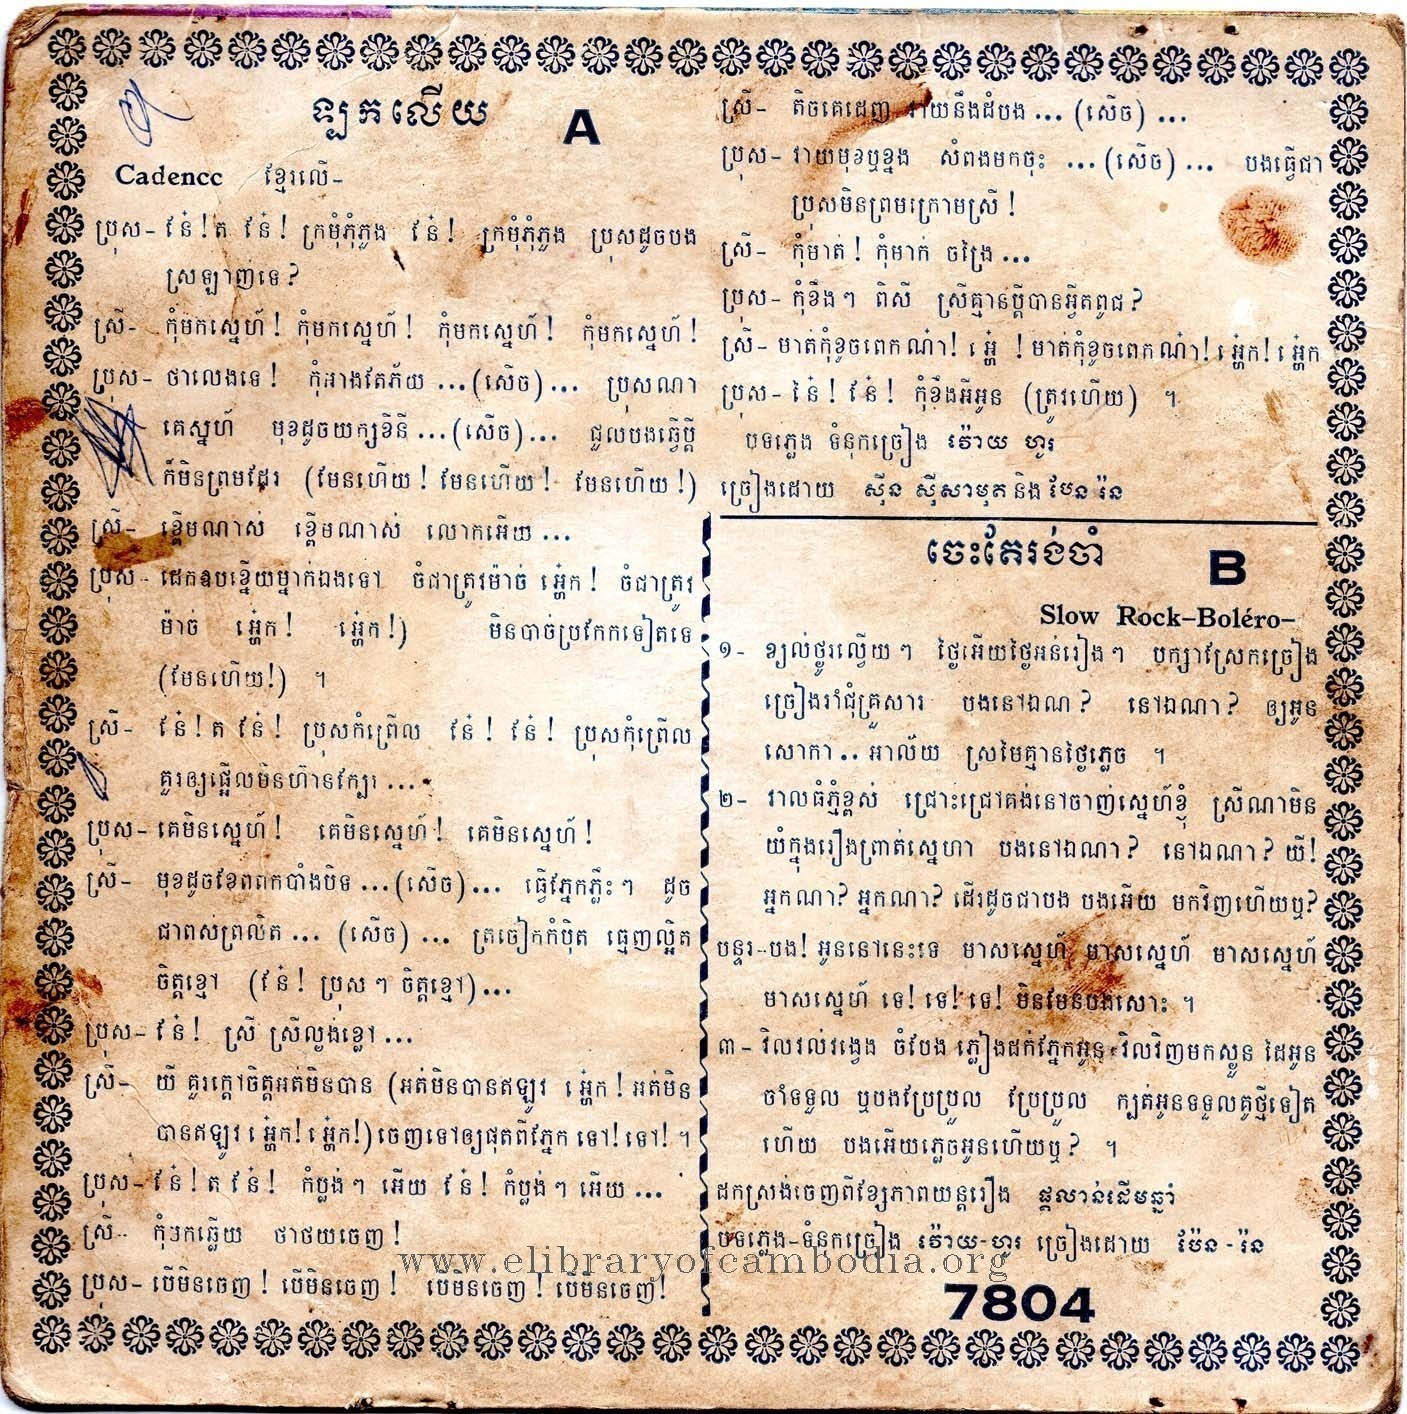 ឡកលើយ A
Cadence ខ្មែរលើ-
ប្រុស- នែ៎! ត នែ៎! ក្រមុំភុំភួង នែ៎! ក្រមុំភុំភួង ប្រុសដូចបង
ស្រឡាញ់ទេ?
ស្រី- កុំមកស្នេហ៍! កុំមកស្នេហ៍! កុំមកស្នេហ៍! កុំមកស្នេហ៍!
ប្រុស- ថាលេងទេ! កុំអាងតែភ័យ ...(សើច)... ប្រុសណា
គេស្នេហ៍ មុខដូចយក្សខិនី ...(សើច)... ជួលបងធ្វើប្ដី
ក៏មិនព្រមដែរ (មែនហើយ! មែនហើយ! មែនហើយ!)
ស្រី- ខ្ពើមណាស់ ខ្ពើមណាស់ លោកអើយ ...
ប្រុស- ដេកឱបខ្នើយម្នាក់ឯងទៅ ចំជាត្រូវម៉ាច់ អ្ហែ៎ក! ចំជាត្រូវ
ម៉ាច់ អ្ហែ៎ក! អ្ហែ៎ក!) មិនបាច់ប្រកែកទៀតទេ
(មែនហើយ!) ។
ស្រី- នែ៎! ត នែ៎! ប្រុសកំព្រើល នែ៎! នែ៎! ប្រុសកុំព្រើល
គួរឲ្យផ្អើលមិនហ៊ានក្បែរ ...
ប្រុស- គេមិនស្នេហ៍! គេមិនស្នេហ៍! គេមិនស្នេហ៍!
ស្រី- មុខដូចខែពពកបាំងបិទ ...(សើច)... ធ្វើភ្នែកភ្លឹះៗ ដូច
ជាពស់ព្រលិត ... (សើច) ... ត្រចៀកកំប៉ិត ធ្មេញល្អិត
ចិត្តខ្មៅ (នែ៎! ប្រុសៗ ចិត្តខ្មៅ)...
ប្រុស- នែ៎! ស្រី ស្រីល្ងង់ខ្លៅ ...
ស្រី- យី គួរក្ដៅចិត្តអត់មិនបាន (អត់មិនបានឥឡូវ អ្ហែ៎ក! អត់មិន
បានឥឡូវ អ្ហែ៎ក! អ្ហែ៎ក!) ចេញទៅឲ្យផុតពីភ្នែក ទៅ! ទៅ! ។
ប្រុស- នែ៎! ត នែ៎! កំប្លង់ៗ អើយ នែ៎! កំប្លង់ៗ អើយ ...
ស្រី- កុំមកឆ្លើយ ថាថយចេញ!
ប្រុស- បើមិនចេញ! បើមិនចេញ! បើមិនចេញ! បើមិនចេញ!
ស្រី- តិចគេដេញ វាយនឹងដំបង ... (សើច) ...
ប្រុស- វាយមុខឬខ្នង សំពងមកចុះ ...(សើច)... បងធ្វើជា
ប្រុសមិនព្រមក្រោមស្រី!
ស្រី- កុំមាត់! កុំមាក់ ចង្រៃ ...
ប្រុស- កុំខឹងៗ ពិសី ស្រីគ្មានប្ដីបានអ្វីតពូជ?
ស្រី- មាត់កុំខូចពេកណ៎ា! អ្ហែ៎ ! មាត់កុំខូចពេកណ៎ា! អ្ហែ៎ក! អ្ហែ៎ក
ប្រុស- នែ៎! នែ៎! កុំខឹងអីអូន (ត្រូវហើយ) ។
បទភ្លេង ទំនុកច្រៀង វ៉ោយ ហូរ
ច្រៀងដោយ ស៊ីន ស៊ីសាមុត និង ប៉ែន រ៉ន
ចេះតែរង់ចាំ B
Slow Rock-Boléro-
១- ខ្យល់ផ្លូរល្វើយៗ ថ្ងៃអើយថ្ងៃអន់រៀងៗ បក្សាស្រែកច្រៀង
ច្រៀងរាំជុំគ្រួសារ បងនៅឯណា? នៅឯណា? ឲ្យអូន
សោកា.. អាល័យ ស្រមៃគ្មានថ្ងៃភ្លេច ។
២- វាលធំភ្នំខ្ពស់ ជ្រោះជ្រៅគង់នៅចាញ់ស្នេហ៍ខ្ញុំ ស្រីណាមិន
យំក្នុងរឿងព្រាត់ស្នេហា បងនៅឯណា? នៅឯណា? យី!
អ្នកណា? អ្នកណា? ដើរដូចជាបង បងអើយ មកវិញហើយឬ?
បន្ទរ--បង! អូននៅនេះទេ មាសស្នេហ៍ មាសស្នេហ៍ មាសស្នេហ៍
មាសស្នេហ៍ ទេ! ទេ! ទេ! មិនមែនបងសោះ ។
៣- វិលវល់វង្វេង ចំបែង ភ្លៀងដក់ភ្នែកអូន វិលវិញមកស្ងួន ដៃអូន
ចាំទទួល ឬបងប្រែប្រួល ប្រែប្រួល ក្បត់អូនទទួលគូថ្មីទៀត
ហើយ បងអើយភ្លេចអូនហើយឬ? ។
ដកស្រង់ចេញពីខ្សែភាពយន្តរឿង ផ្កលាន់ដើមឆ្នាំ
បទភ្លេង-ទំនុកច្រៀង វ៉ោយ-ហូរ ច្រៀងដោយ ប៉ែន-រ៉ន
www.elibraryofcambodia.org
7804